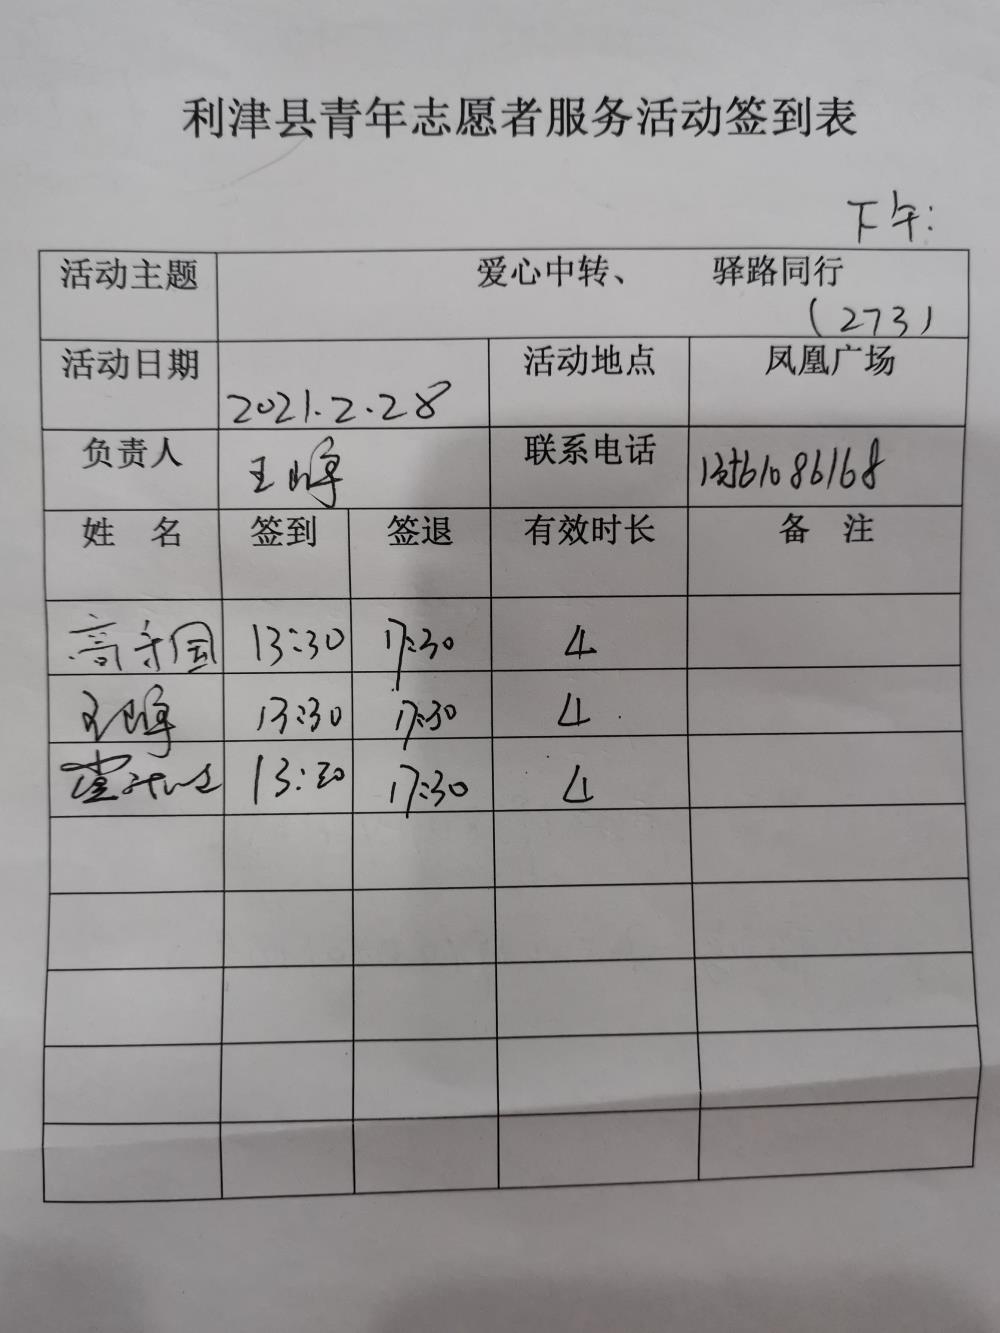 利津县青年志愿者服务活动签到表
下午:
活动主题 爱心中转、 驿路同行
(273)
活动日期 2021.2.28 活动地点 凤凰广场
负责人 王晖 联系电话
姓 名 签到 签退 有效时长 备 注
高守国 13:30 17:30 4
王晖 13:30 17:30 4
13:30 17:30 4